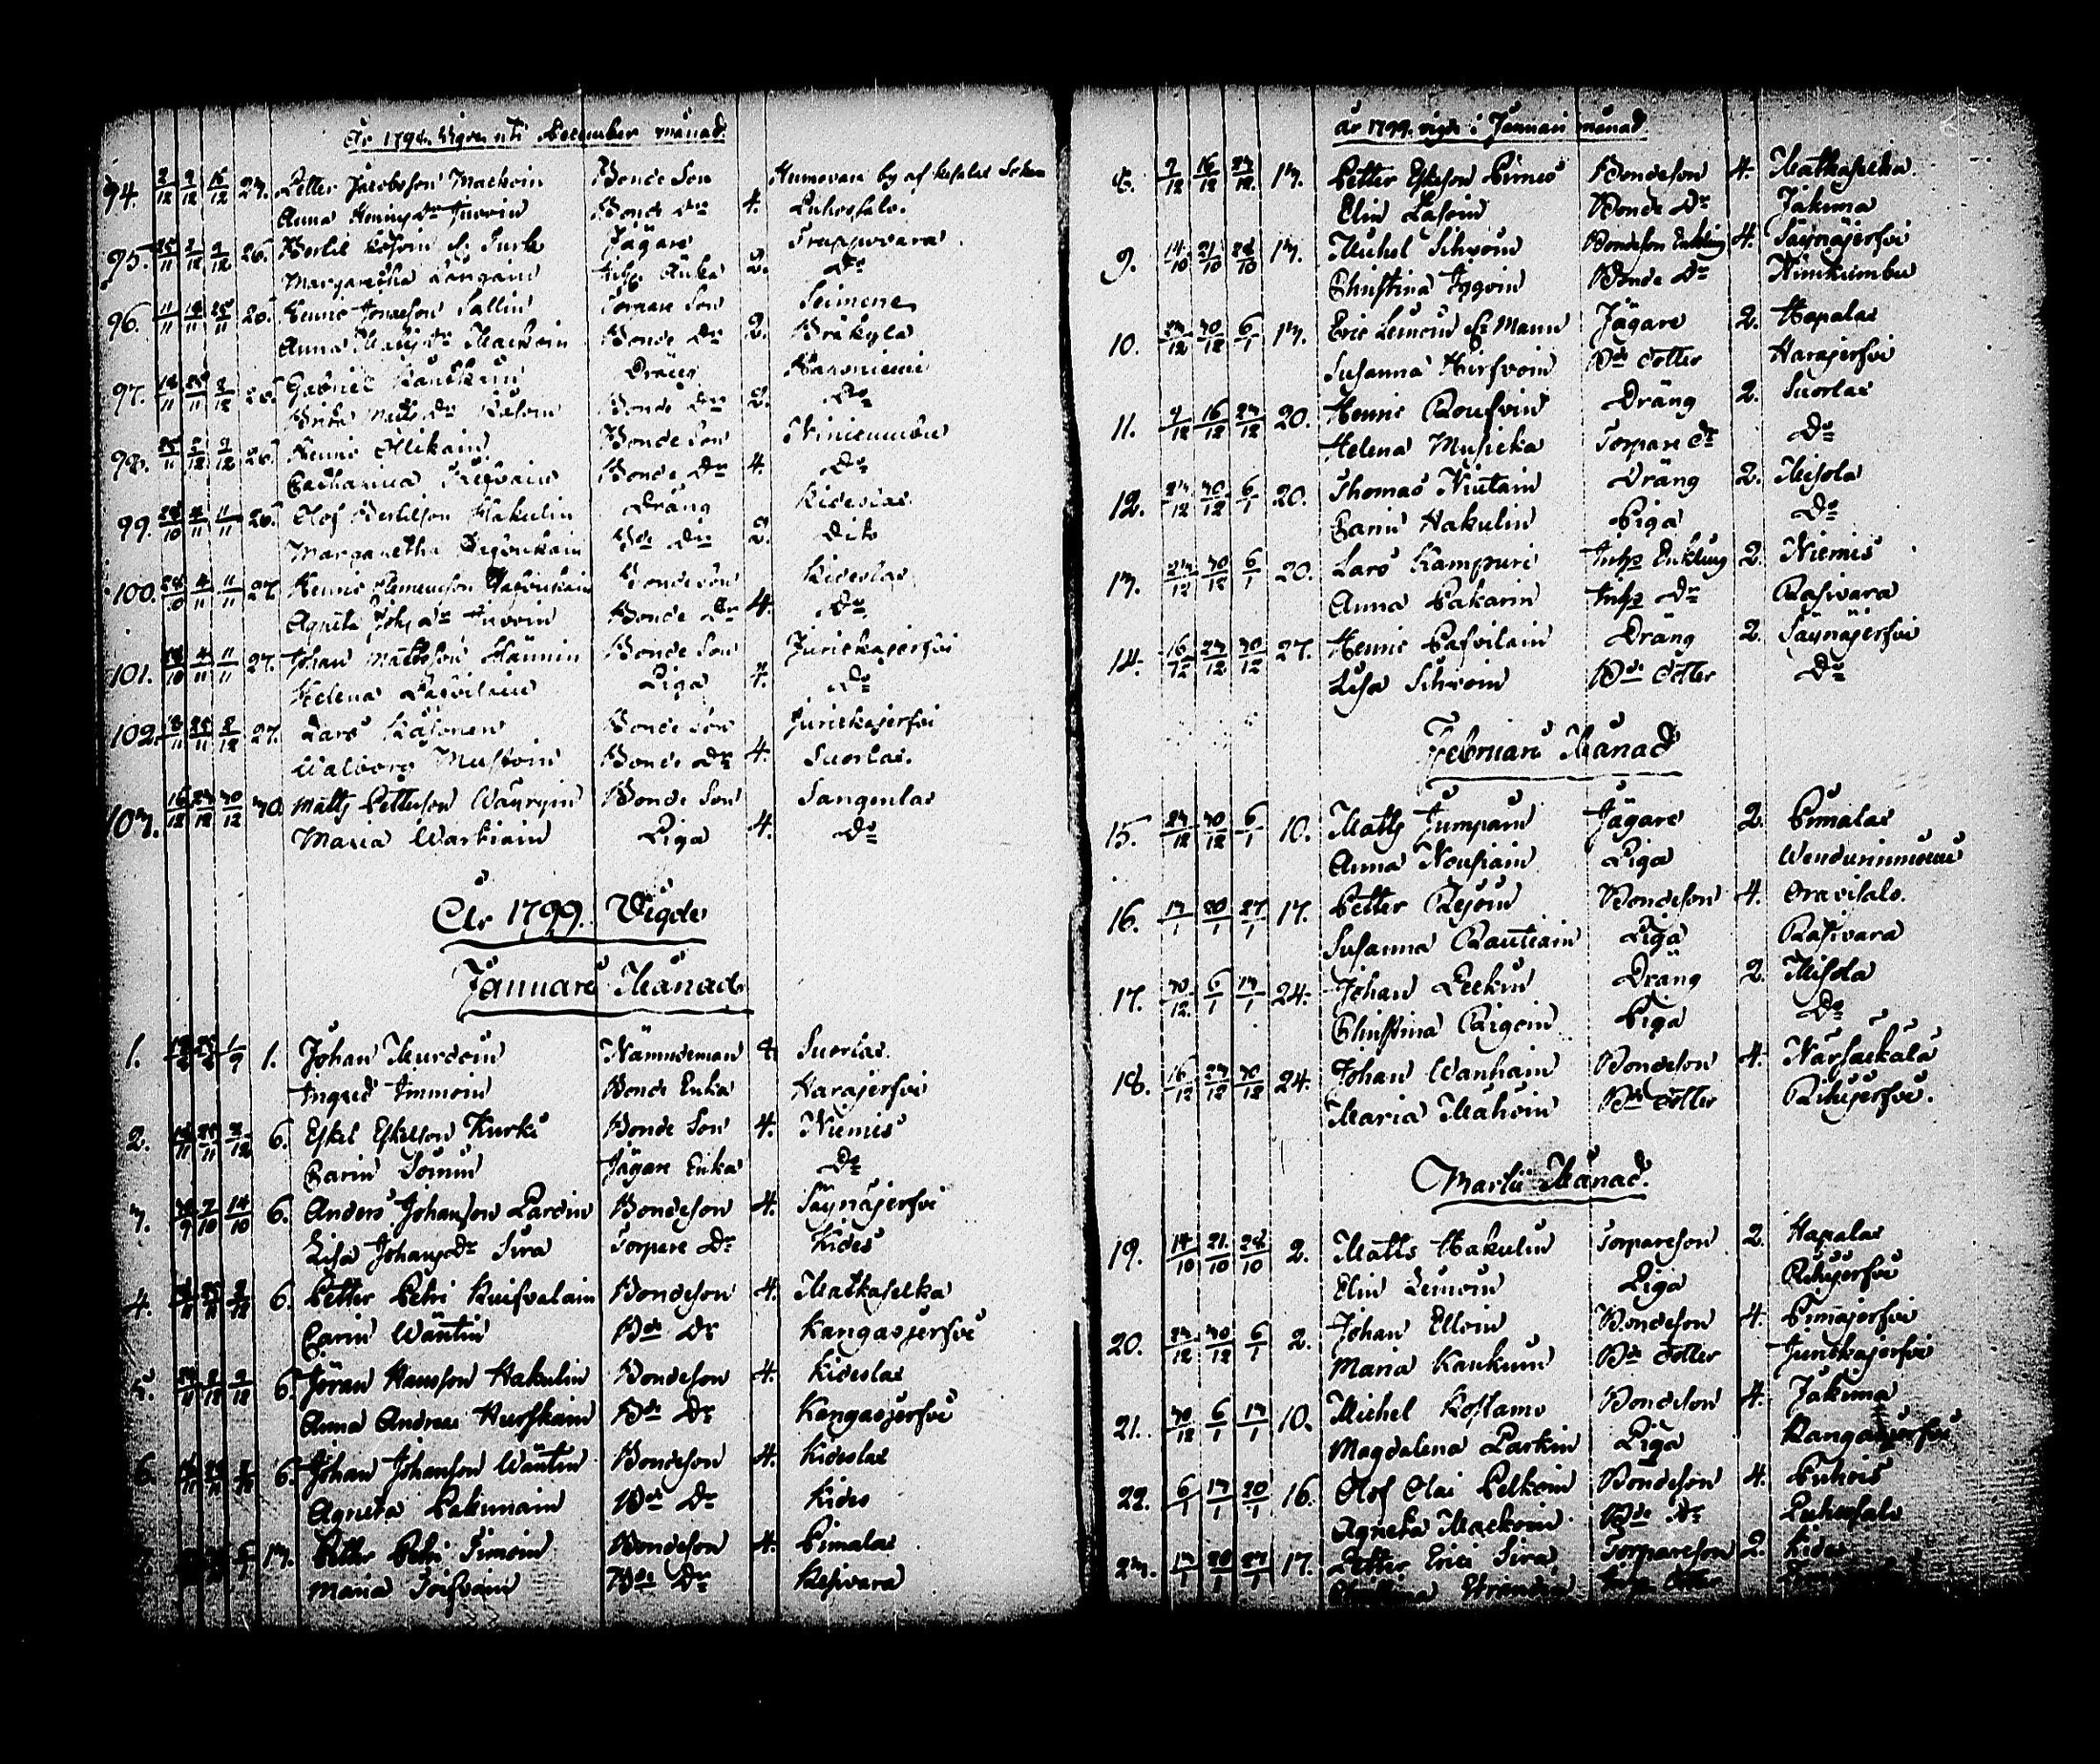 År 1798. Vigde uti December månad.
94. 2/12 9/12 16/12 23. Petter Jacobsson Mackoin Bonde Son Humovara by af Kesalax Sokn
Anna Henrics Dr Turoin Bonde Dr 4. Puhossalo.
95. 25/11 2/12 9/12 26. Bertil Kosoin Jägare Truppovara.
Margaretha Långain Enka 2. Do
96. 11/11 18/11 25/11 26. Henric Jonasson Sallin Torpare Son Suimone
Anna Matts Dr Mackoin Bonde Dr 2. Bråkylä
97. 18/11 25/11 2/12 26. Gabriel Kauckuin Dräng Haroniemi
Brita Matts Dr Käsoin Bonde Dr 2. Do
98. 25/11 2/12 9/12 26. Henric Olikain Bonde Son Niinicumbu
Catharina Bonde Dr 4. Do
99. 28/10 4/11 11/11 26. Olof Bertilson Hakulin Dräng Kideslax
Margaretha Bde Dr 2. Dito
100. 28/10 4/11 11/11 27. Henric Clemensson Bondeson Kideslax
Agneta Joh: Dr Turoin Bonde Dr 4. Do
101. 28/10 4/11 11/11 27. Johan Mattsson Hännin Bonde Son Jurickajerfvi
Helena Pasvilain Piga 4. Do
102. 18/11 25/11 2/12 27. Lars Käsonen Bonde Son Jurickajerfvi
Walborg Mustoin Bonde Dr 4. Suorlax.
103. 16/12 23/12 30/12 30. Matts Petterson Wäyryin Bonde Son Sangenlax
Maria Wartiain Piga 4. Do
År 1799. Vigde
Januarii Månad.
1. 1/9 1. Johan Murdoin Nämndeman 4. Suorlax.
Ingred Immoin Bonde Enka Harajerfvi
2. 18/11 25/11 2/12 6. Eskel Eskelson Kurki Bonde Son 4. Niemis
Carin Soinin Jägare Enka Do
3. 30/9 7/10 14/10 6. Anders Johansson Pardin Bondeson 4. Säynäjerfvi
Lisa Johans Dr Sira Torpare Dr Kides
4. 18/11 25/11 2/12 6. Petter Petri Kuisvalain Bondeson 4. Matkaselka
Carin Wäntin Bde Dr Kangasjerfvi
5. 25/11 2/12 9/12 6. Jöran Hansson Hakulin Bondeson 4. Kideslax
Anna Andreæ Hurskain Bde Dr Kangasjerfvi
6. 6. Johan Johansson Wäntin Bondeson 4. Kideslax
Agneta Pakurnain Bde Dr Kides
7. 6/1 13. Petter Petri Simoin Bondeson 4. Pimalax
Maria Toisvain Bde Dr Kesivara
år 1799. vigde i Januari månad.
8. 9/12 16/12 23/12 13. Petter Eskeson Pirnes Bondeson 4. Matkaselka.
Elin Käsoin Bonde Dr Jakima
9. 14/10 21/10 28/10 13. Michel Sihvoin Bondeson Enkling 4. Säynäjerfvi
Christina Iggoin Bonde Dr Niinikumbu
10. 23/12 30/12 6/1 13. Eric Leinoin El: Mann Jägare 2. Hapalax
Susanna Hirfvoin Bde dotter Harajerfvi
11. 9/12 16/12 23/12 20. Henric Rousvin Dräng 2. Suorlax
Helena Musicka Torpare dr Do
12. 23/12 30/12 6/1 20. Thomas Niutain Dräng 2. Misola
Carin Hakulin Piga Do
13. 23/12 30/12 6/1 20. Lars Kampuri Inhs Enkling 2. Niemis
Anna Pakarin Inhs Dr Rasivara
14. 16/12 23/12 30/12 27. Henric Pasvilain Dräng 2. Säynäjerfvi
Lisa Sihvoin Bde dotter Do
Februarii Månad
15. 23/12 30/12 6/1 10. Matts Jumpain Jägare 2. Pimalax
Anna Nousiain Piga
16. 13/1 20/1 27/1 17. Petter Rejoin Bondeson 4. Oravisalo.
Susanna Rautiain Piga Rasivara
17. 30/12 6/1 13/1 24. Johan Leckin Dräng 2. Misola
Christina Piga Do
18. 16/12 23/12 30/12 24. Johan Wanhain Bondeson 4. Närsäckälä
Maria Mahoin Bde dotter Rihijerfvi.
Martii Månad.
19. 14/10 21/10 28/10 2. Matts Hakulin Torpareson 2. Hapalax
Elin Leinoin Piga Rihijerfvi
20. 23/12 30/12 6/1 2. Johan Elloin Bondeson 4. Pimäjerfvi
Maria Kaukuin Bde dotter Jurickajerfvi
21. 30/12 6/1 13/1 10. Michel Kostamo Bondeson 4. Jakima
Magdalena Parkin Piga Kangasjerfvi
22. 6/1 13/1 20/1 16. Olof Olai Pelkoin Bondeson 4. Puhois
Agneta Mackoin Bde Dr Puhossalo
23. 13/1 20/1 27/1 17. Petter Erici Sira Torpareson 2. Kides
Christina Inhs dotter